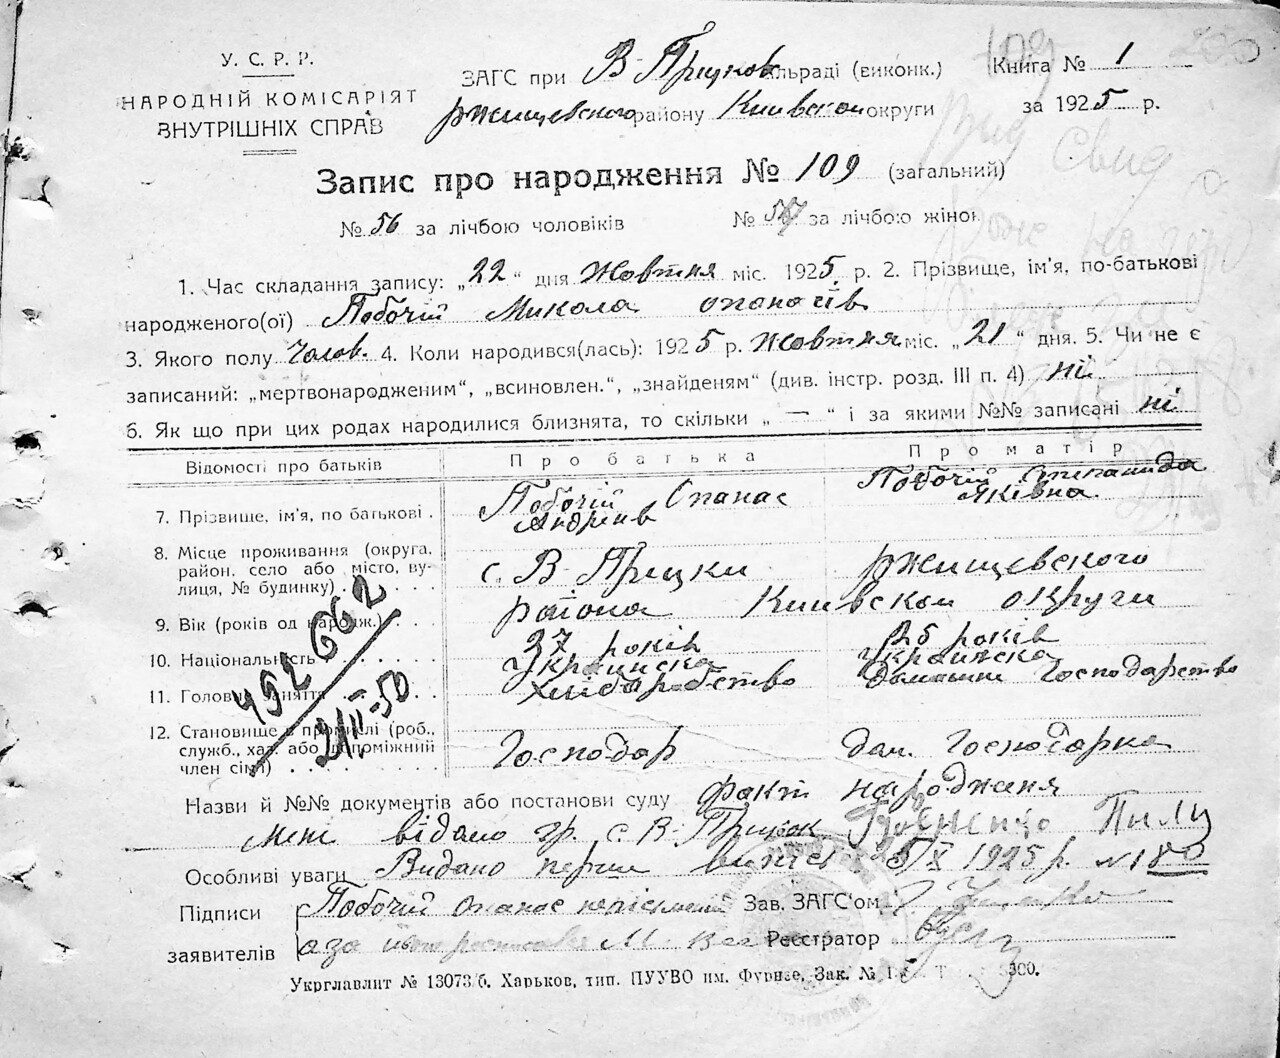 У. С. Р. Р.
НАРОДНІЙ КОМІСАРІЯТ
ВНУТРІШНІХ СПРАВ
ЗАГС при В-Прицков сільраді (виконк.)
Ржищевского району Киівской округи
Книга № 1
за 1925 р.
109
Запис про народження № 109 (загальний)
№ 56 за лічбою чоловіків № за лічбою жінок
1. Час складання запису: „22“ дня Жовтня міс. 1925 р. 2. Прізвище, ім'я, по-батькові
народженого(ої) Побочій Микола опанасів
3. Якого полу Чолов. 4. Коли народився(лась): 1925 р. Жовтня міс. „21“ дня. 5. Чи не є
записаний: „мертвонародженим“, „всиновлен.“, „знайденям“ (див. інстр. розд. III п. 4) ні
6. Як що при цих родах народилися близнята, то скільки „ — “ і за якими №№ записані ні
Відомості про батьків Про батька Про матір
7. Прізвище, ім'я, по батькові . Побочій Опанас Андріів Побочій Степанида Яківна
8. Місце проживання (округа, район, село або місто, вулиця, № будинку) с. В-Прицки Ржищевского
района Киівской округи
9. Вік (років од народж.) 37 років 25 років
10. Національність Украинска Украинска
11. Головні заняття хліборобство Домашнє Господарство
12. Становище в промислі (роб., служб., хаз. або допоміжний член сім'ї) Господар дом. Господарка
492662
21/II-50
Назви й №№ документів або постанови суду факт народженя
відано гр. с. В-Прицок
Особливі уваги Видано перши виписі X 1925 р. № 180
Підписи Побочій Опанас неписьменій Зав. ЗАГС'ом
заявителів а за Реєстратор
Укрглавлит № 13073/б. Харьков, тип. ПУУВО им. Фрунзе, Зак. №